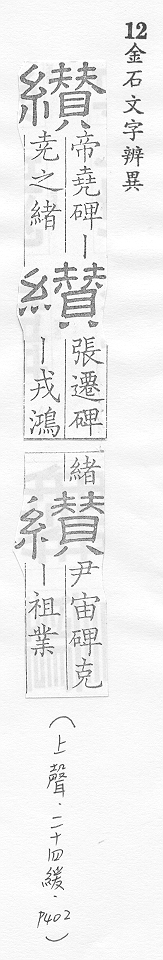 12金石文字辨異
纉
帝堯碑丨
尭之緒
纉
張遷碑
丨戎鴻
緒
纉
尹宙碑克
丨祖業
(上聲.二十四緩.P402)